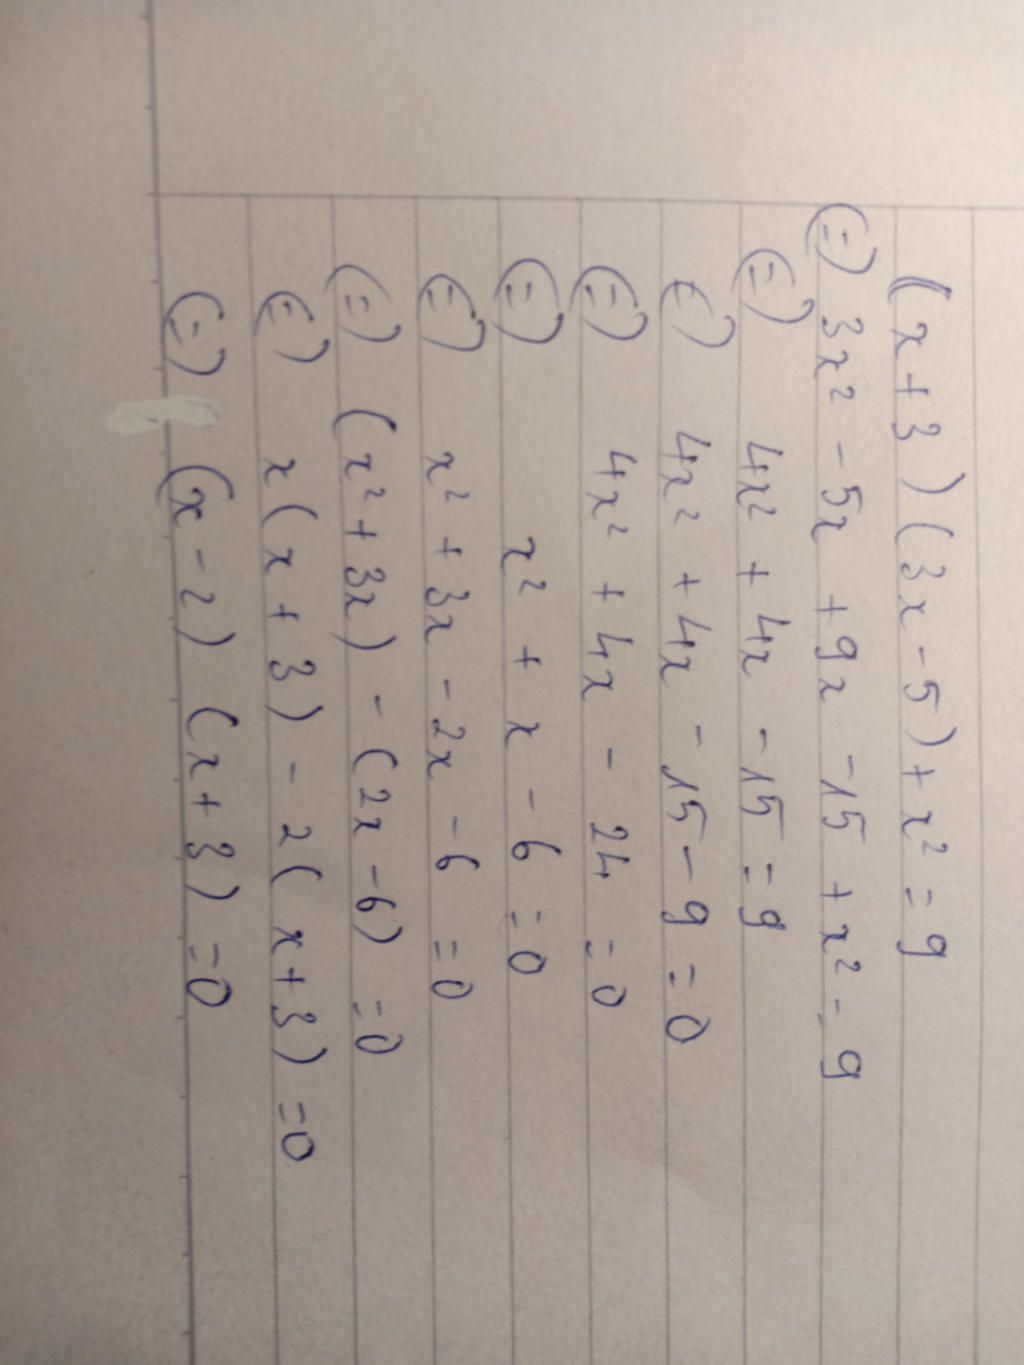 (x+3)(3x-5)+x² = 9
(=) 3x² - 5x + 9x - 15 + x² - 9
(=) 4x² + 4x - 15 = 9
(=) 4x² + 4x - 15 - 9 = 0
(=) 4x² + 4x - 24 = 0
(=) x² + x - 6 = 0
(=) x² + 3x - 2x - 6 = 0
(=) (x² + 3x) - (2x - 6) = 0
(=) x(x+3) - 2(x+3) = 0
(=) (x-2) (x+3) = 0